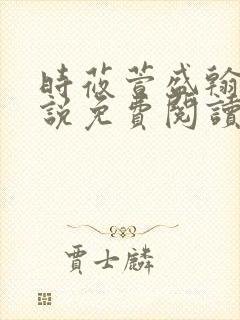 時莜萱盛翰
說免費閱讀
賈士麟